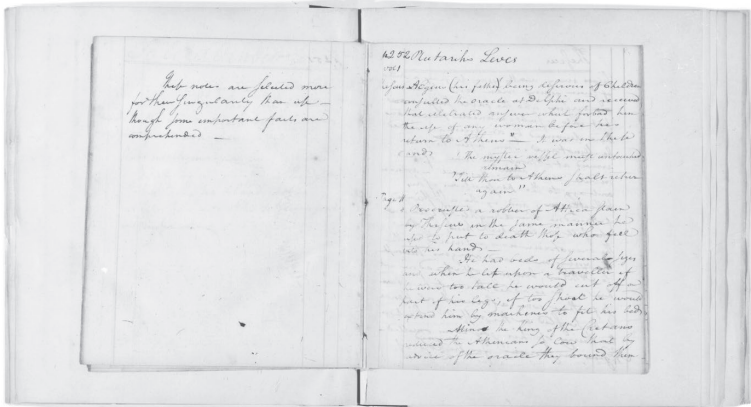 These notes are selected more
for their singularity than use —
though some important facts are
comprehended —
Plutarchs Lives
Vol 1
Aegeus (his father) being desirous of Children
consulted the oracle at Delphi and received
that celebrated answer which forbad him
the use of any woman before his
return to Athens" — It was in these
words
The mystic vessel must untouched
remain
Till thou to Athens shalt return
again"
Page 11
a robber of Attica slain
by Theseus in the same manner he
used to put to death those who fell
in his hands —
He had beds of several sizes
and when he lit upon a traveller if
he were too tall he would cut off a
part of his legs, if too short he would
extend him by machines to fit his beds
Minos the king of the Cretans
reduced the Athenians so low that by
advice of the oracle they bound them